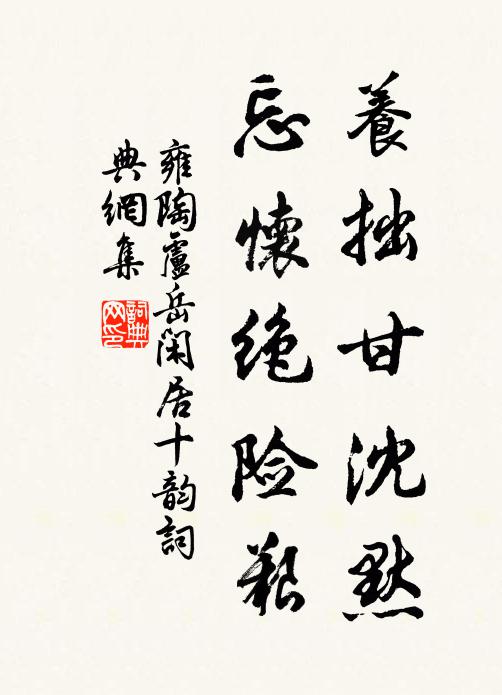 養拙甘沈默
忘懷绝险艱
雍陶盧岳閑居十韵詞
典網集
詞典
网印